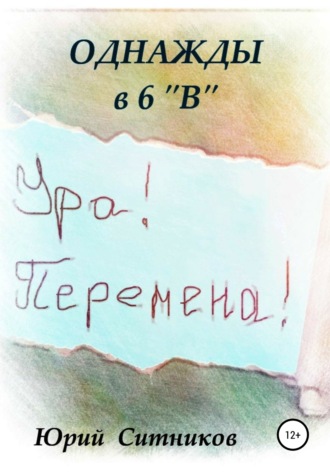 ОДНАЖДЫ
в 6 "В"
Ура!
Перемена!
Юрий Ситников
12+